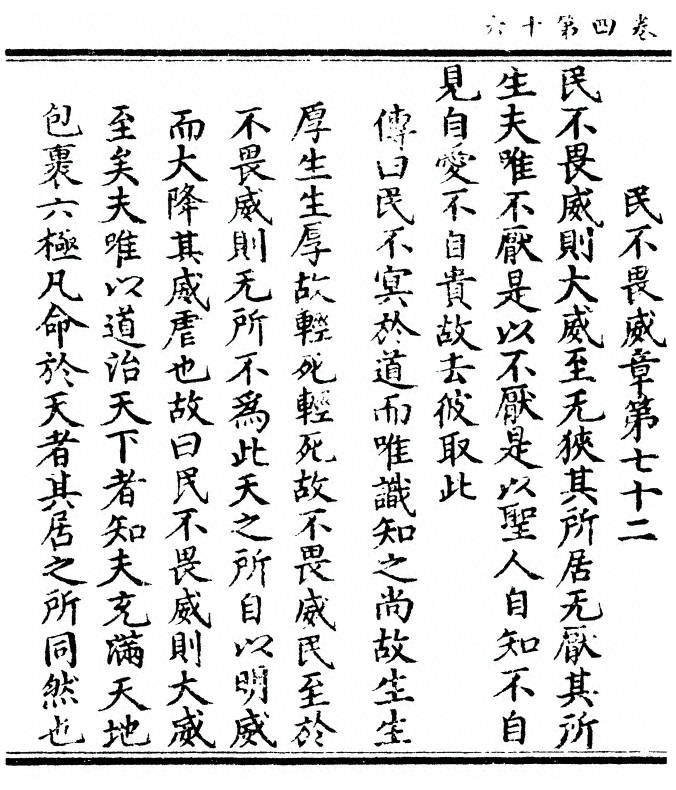 卷四第十六
民不畏威章第七十二
民不畏威則大威至无狹其所居无厭其所
生夫唯不厭是以不厭是以聖人自知不自
見自愛不自貴故去彼取此
傳曰民不冥於道而唯識知之尚故生生
厚生生厚故輕死輕死故不畏威民至於
不畏威則无所不為此天之所自以明威
而大降其威虐也故曰民不畏威則大威
至矣夫唯以道治天下者知夫充滿天地
包裹六極凡命於天者其居之所同然也